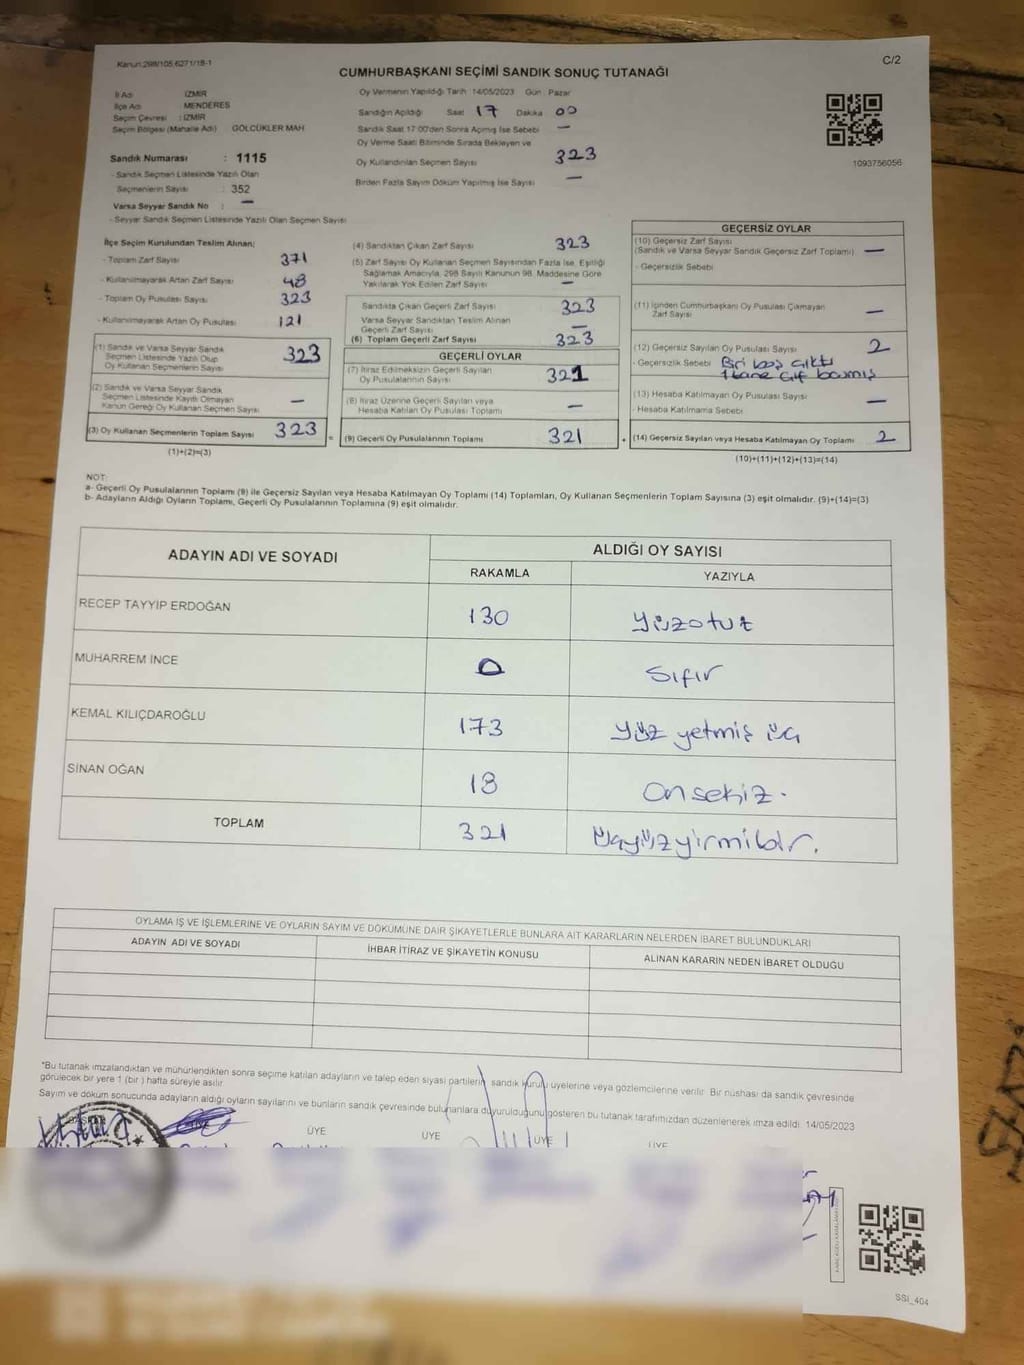 Kanun:298/105,6271/18-1
C/2
CUMHURBAŞKANI SEÇİMİ SANDIK SONUÇ TUTANAĞI
İl Adı : İZMİR
İlçe Adı : MENDERES
Seçim Çevresi : İZMİR
Seçim Bölgesi (Mahalle Adı) : GÖLCÜKLER MAH.
Sandık Numarası : 1115
- Sandık Seçmen Listesinde Yazılı Olan
Seçmenlerin Sayısı : 352
Varsa Seyyar Sandık No : —
- Seyyar Sandık Seçmen Listesinde Yazılı Olan Seçmen Sayısı
Oy Vermenin Yapıldığı Tarih 14/05/2023 Gün : Pazar
Sandığın Açıldığı Saat 17 Dakika 00
Sandık Saat 17:00'den Sonra Açmış İse Sebebi —
Oy Verme Saati Bitiminde Sırada Bekleyen ve
Oy Kullandırılan Seçmen Sayısı 323
Birden Fazla Sayım Döküm Yapılmış İse Sayısı —
1093756056
İlçe Seçim Kurulundan Teslim Alınan;
- Toplam Zarf Sayısı 371
- Kullanılmayarak Artan Zarf Sayısı 48
- Toplam Oy Pusulası Sayısı 323
- Kullanılmayarak Artan Oy Pusulası 121
(1) Sandık ve Varsa Seyyar Sandık
Seçmen Listesinde Yazılı Olup
Oy Kullanan Seçmenlerin Sayısı 323
(2) Sandık ve Varsa Seyyar Sandık
Seçmen Listesinde Kayıtlı Olmayan
Kanun Gereği Oy Kullanan Seçmen Sayısı —
(3) Oy Kullanan Seçmenlerin Toplam Sayısı 323
(1)+(2)=(3)
(4) Sandıktan Çıkan Zarf Sayısı 323
(5) Zarf Sayısı Oy Kullanan Seçmen Sayısından Fazla İse, Eşitliği
Sağlamak Amacıyla, 298 Sayılı Kanunun 98. Maddesine Göre
Yakılarak Yok Edilen Zarf Sayısı —
Sandıkta Çıkan Geçerli Zarf Sayısı 323
Varsa Seyyar Sandıktan Teslim Alınan
Geçerli Zarf Sayısı —
(6) Toplam Geçerli Zarf Sayısı 323
GEÇERLİ OYLAR
(7) İtiraz Edilmeksizin Geçerli Sayılan
Oy Pusulalarının Sayısı 321
(8) İtiraz Üzerine Geçerli Sayılan veya
Hesaba Katılan Oy Pusulası Toplamı —
= (9) Geçerli Oy Pusulalarının Toplamı 321
GEÇERSİZ OYLAR
(10) Geçersiz Zarf Sayısı
(Sandık ve Varsa Seyyar Sandık Geçersiz Zarf Toplamı) —
- Geçersizlik Sebebi
(11) İçinden Cumhurbaşkanı Oy Pusulası Çıkmayan
Zarf Sayısı —
(12) Geçersiz Sayılan Oy Pusulası Sayısı 2
- Geçersizlik Sebebi Biri boş çıktı
1 tane çif basmış
(13) Hesaba Katılmayan Oy Pusulası Sayısı —
- Hesaba Katılmama Sebebi
+ (14) Geçersiz Sayılan veya Hesaba Katılmayan Oy Toplamı 2
(10)+(11)+(12)+(13)=(14)
NOT:
a- Geçerli Oy Pusulalarının Toplamı (9) ile Geçersiz Sayılan veya Hesaba Katılmayan Oy Toplamı (14) Toplamları, Oy Kullanan Seçmenlerin Toplam Sayısına (3) eşit olmalıdır. (9)+(14)=(3)
b- Adayların Aldığı Oyların Toplamı, Geçerli Oy Pusulalarının Toplamına (9) eşit olmalıdır.
ADAYIN ADI VE SOYADI ALDIĞI OY SAYISI
RAKAMLA YAZIYLA
RECEP TAYYİP ERDOĞAN 130 Yüzotuz
MUHARREM İNCE 0 Sıfır
KEMAL KILIÇDAROĞLU 173 Yüz yetmiş üç
SİNAN OĞAN 18 Onsekiz.
TOPLAM 321 Üçyüzyirmibir.
OYLAMA İŞ VE İŞLEMLERİNE VE OYLARIN SAYIM VE DÖKÜMÜNE DAİR ŞİKAYETLERLE BUNLARA AİT KARARLARIN NELERDEN İBARET BULUNDUKLARI
ADAYIN ADI VE SOYADI İHBAR İTİRAZ VE ŞİKAYETİN KONUSU ALINAN KARARIN NEDEN İBARET OLDUĞU
*Bu tutanak imzalandıktan ve mühürlendikten sonra seçime katılan adayların ve talep eden siyasi partilerin, sandık kurulu üyelerine veya gözlemcilerine verilir. Bir nüshası da sandık çevresinde
görülecek bir yere 1 (bir ) hafta süreyle asılır.
Sayım ve döküm sonucunda adayların aldığı oyların sayılarını ve bunların sandık çevresinde bulunanlara duyurulduğunu gösteren bu tutanak tarafımızdan düzenlenerek imza edildi. 14/05/2023
ÜYE ÜYE ÜYE ÜYE
SSI_404